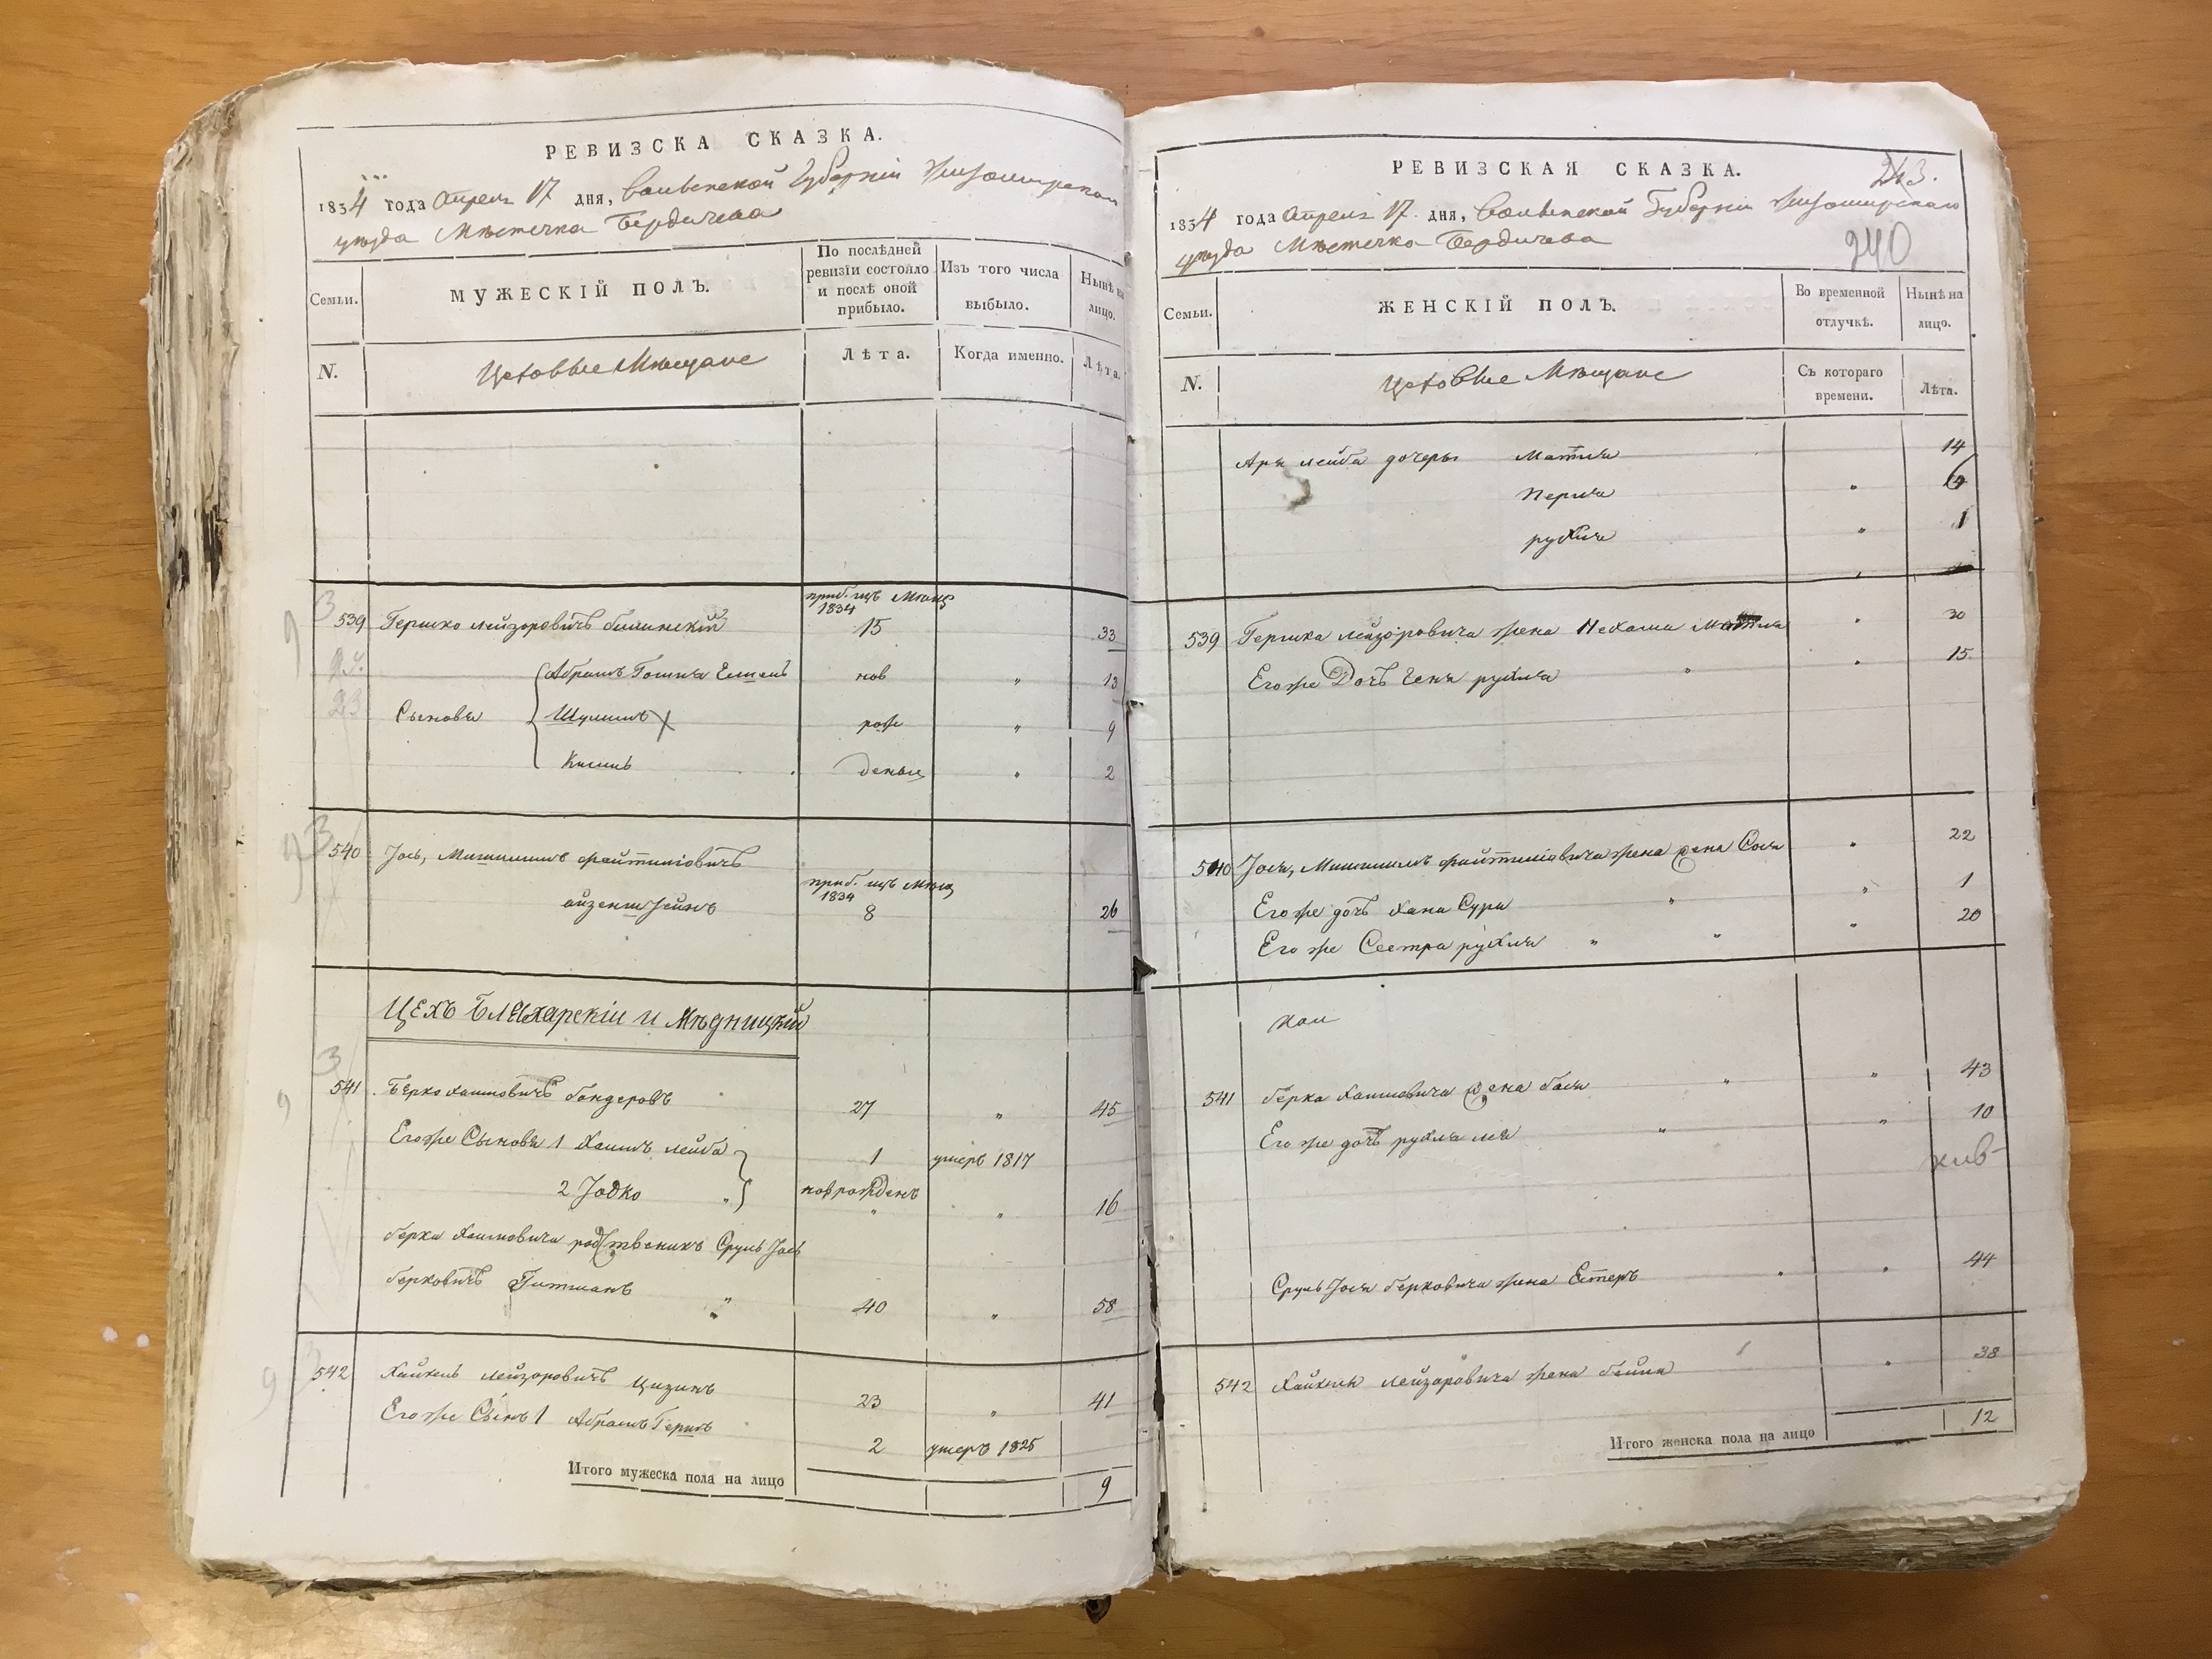 РЕВИЗСКА СКАЗКА.
1834 года Апреля 17 дня, Волынской Губерніи Житомирскаго
уезда Мѣстечка Бердичева
Семьи.
МУЖЕСКІЙ ПОЛЪ.
По послѣдней ревизіи состояло и послѣ оной прибыло.
Изъ того числа выбыло.
Нынѣ на лицо.
N.
Цеховые Мѣщане
Лѣта.
Когда именно.
Лѣта.
539 Гершко Лейзоровичъ 15 33
1834
Сыновья
Абрамъ нов „ 13
Шулимъ рож „ 9
дены „ 2
540 Іось, Файтелiовичъ
1834
8 26
Цехъ Бляхарскіи и Мѣдницкій
541 Берко Хаимовичъ Бондеровъ 27 „ 45
Его же Сыновья 1 Хаимъ Лейба 1 умеръ 1817
2 Іодко „ новрожденъ „ 16
Берка Хаимовича родственикъ Сруль Іось
Берковичъ Гитманъ „ 40 „ 58
542 Хайкель Лейзоровичъ Цизинъ 23 „ 41
Его же Сынъ 1 Абрамъ Гершъ 2 умеръ 1825
Итого мужеска пола на лицо 9
РЕВИЗСКАЯ СКАЗКА.
243.
1834 года Апреля 17 дня, Волынской Губерніи Житомирскаго
уезда Мѣстечка Бердичева
240
Семьи.
ЖЕНСКІЙ ПОЛЪ.
Во временной отлучкѣ.
Нынѣ на лицо.
N.
Цеховые Мѣщане
Съ котораго времени.
Лѣта.
Арн Лейба дочеры Матля 14
Перля „ 6
Рухля „ 1
539 Гершка Лейзоровича жена Нехама „ 30
Его же Дочь Рухля „ „ 15
540 Іося, Файтелiовича жена Сося „ 22
Его же дочь Хана Сура „ „ 1
Его же Сестра Рухля „ „ „ 20
541 Берка Хаимовича жена Бася „ „ 43
Его же дочь Рухля Лея „ „ 10
Сруль Іося Берковича жена Естеръ „ „ 44
542 Хайкеля Лейзоровича жена Бейла „ 38
Итого женска пола на лицо 12